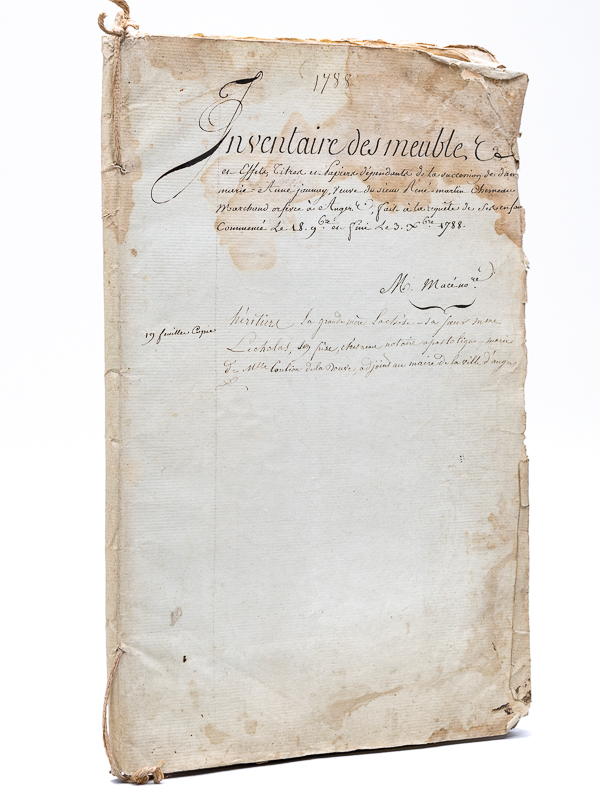 1788
Inventaire des meuble, &
et Effets, Titres et Papiers dépendants de la succession de dam
marie-Anne jaunay, veuve du sieur René-martin Chesneau
Marchand orfèvre à Angers, fait à la requête de ses enfan
Commencé Le 18. 9bre et fini Le 3. Xbre 1788.
M. Macé nore
19 feuilles Copie
héritiers la grande mère la sœur mme
Lecholas, son frère, notaire apostolique, marié
de Melle de la Douve, adjoint au maire de la ville d'angers